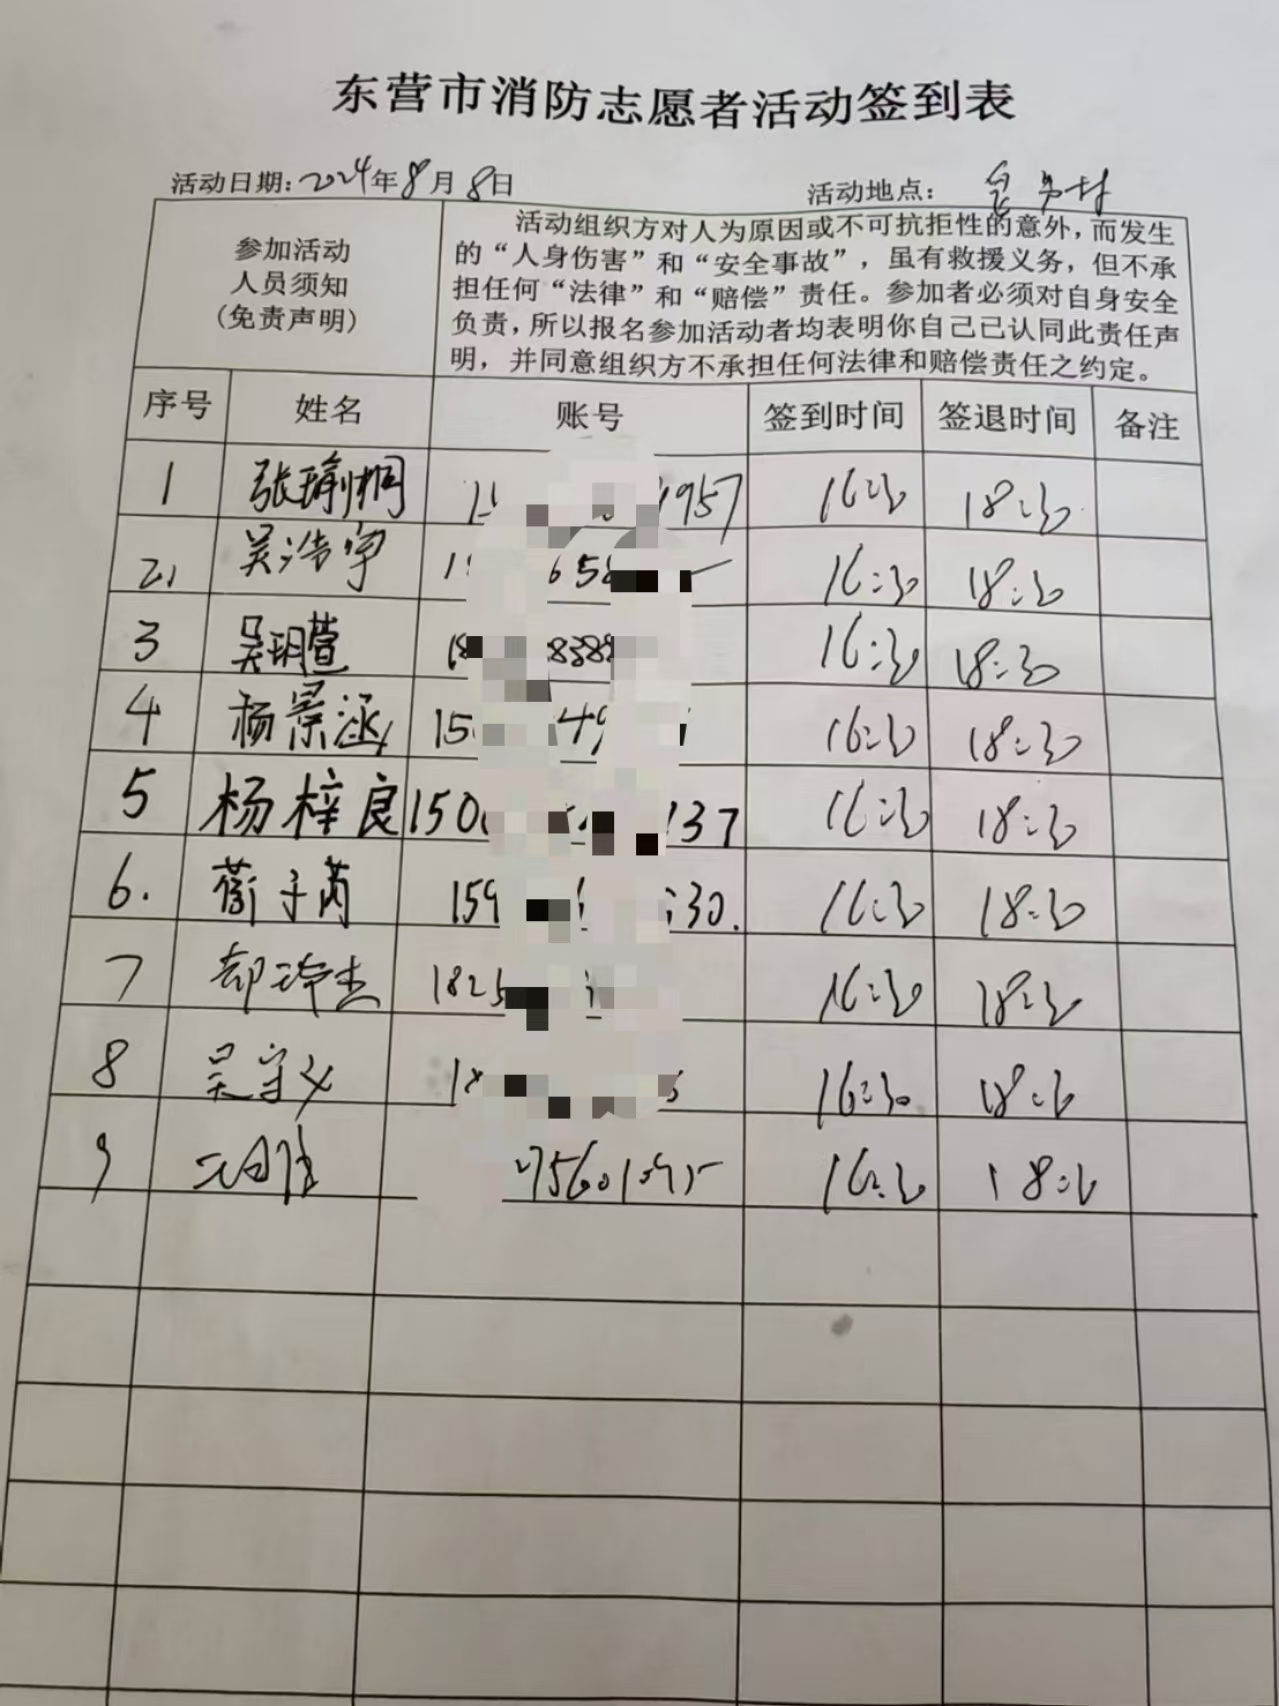 东营市消防志愿者活动签到表
活动日期:2024年8月8日 活动地点:
参加活动
人员须知
(免责声明)
活动组织方对人为原因或不可抗拒性的意外,而发生
的“人身伤害”和“安全事故”,虽有救援义务,但不承
担任何“法律”和“赔偿”责任。参加者必须对自身安全
负责,所以报名参加活动者均表明你自己已认同此责任声
明,并同意组织方不承担任何法律和赔偿责任之约定。
序号 姓名 账号 签到时间 签退时间 备注
1 张瑜桐 1957 16:30 18:30
2. 吴浩宇 16:30 18:30
3 吴玥萱 8388 16:30 18:30
4 杨景涵 15 49 16:30 18:30
5 杨梓良 150 137 16:30 18:30
6. 子芮 159 30. 16:30 18:30
7 1825 16:30 18:30
8 吴守义 16:30 18:30
9 16:30 18:30